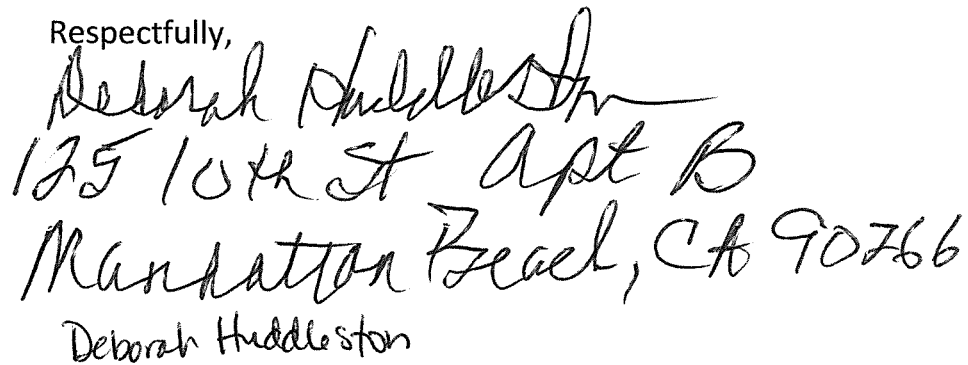 Respectfully,
Deborah Huddleston
125 10th St Apt B
Manhattan Beach, CA 90266
Deborah Huddleston